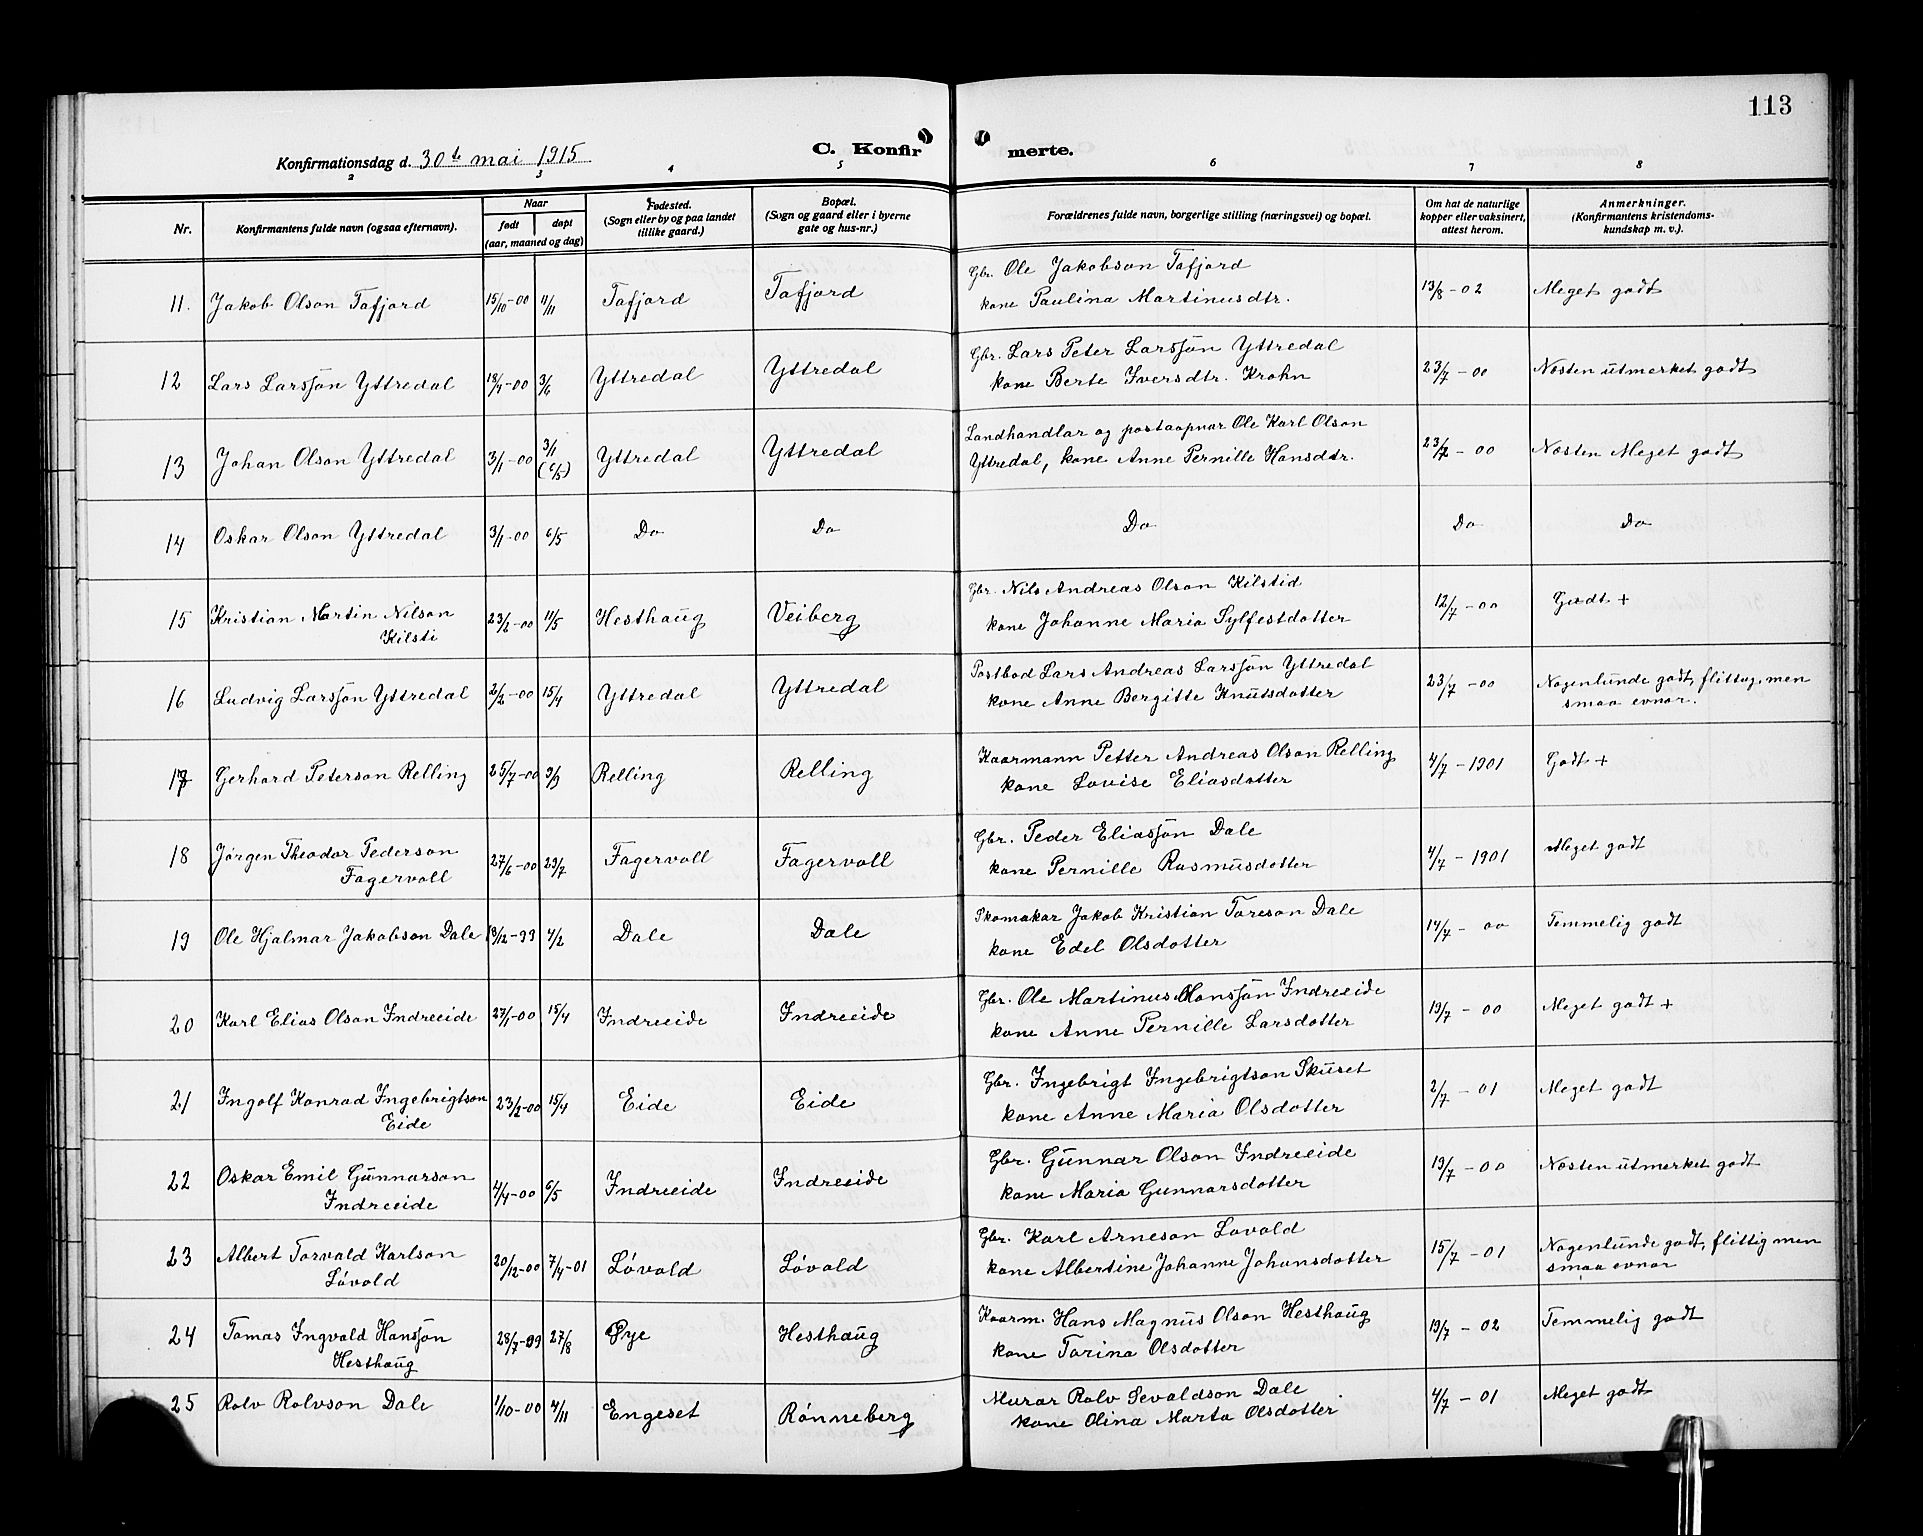 113
Konfirmationsdag d. 30te mai 1915
C. Konfirmerte.
2 3 4 5 6 7 8
Nr.
Konfirmantens fulde navn (ogsaa efternavn).
Naar
født
døpt
(aar, maaned og dag)
Fødested.
(Sogn eller by og paa landet
tillike gaard.)
Bopæl.
(Sogn og gaard eller i byerne
gate og hus-nr.)
Forældrenes fulde navn, borgerlige stilling (næringsvei) og bopæl.
Om hat de naturlige
kopper eller vaksinert,
attest herom.
Anmerkninger.
(Konfirmantens kristendoms-
kundskap m. v.).
11. Jakob Olson Tafjord 15/10-00 11/11 Tafjord Tafjord Gbr. Ole Jakobson Tafjord 13/8-02 Meget godt
kone Paulina Martinusdtr.
12 Lars Larsson Yttredal 18/4-00 3/6 Yttredal Yttredal Gbr. Lars Peter Larsson Yttredal 23/7-00 Næsten utmerket godt
kone Berte Iversdtr. Krohn
13 Johan Olson Yttredal 3/1-00 3/1 (6/5) Yttredal Yttredal Landhandlar og postaapnar Ole Karl Olson 23/7-00 Næsten Meget godt
Yttredal, kone Anne Pernille Hansdtr.
14 Oskar Olson Yttredal 3/1-00 6/5 Do Do Do Do Do
15 Kristian Martin Nilson 23/2-00 11/5 Hesthaug Veiberg Gbr. Nils Andreas Olson Kilstid 12/7-00 Godt +
Kilsti kone Johanne Maria Sylfestdotter
16 Ludvig Larsson Yttredal 2/2-00 15/4 Yttredal Yttredal Postbod Lars Andreas Larsson Yttredal 23/7-00 Nogenlunde godt, flittig, men
kone Anne Bergitte Knutsdotter smaa evnor.
17 Gerhard Peterson Relling 25/7-00 9/9 Relling Relling Kaarmann Petter Andreas Olson Relling 4/7-1901 Godt +
kone Lovise Eliasdotter
18 Jørgen Theodor Pederson 27/6-00 29/7 Fagervoll Fagervoll Gbr. Peder Eliasson Dale 4/7-1901 Meget godt
Fagervoll kone Pernille Rasmusdotter
19 Ole Hjalmar Jakobson Dale 19/12-99 4/2 Dale Dale Skomakar Jakob Kristian Toreson Dale 14/7-00 Temmelig godt
kone Edel Olsdotter
20 Karl Elias Olson Indreeide 27/1-00 15/4 Indreeide Indreeide Gbr. Ole Martinus Hansson Indreeide 19/7-00 Meget godt +
kone Anne Pernille Larsdotter
21 Ingolf Konrad Ingebrigtson 23/2-00 15/4 Eide Eide Gbr. Ingebrigt Ingebrigtson Skuset 2/7-01 Meget godt
Eide kone Anne Maria Olsdotter
22 Oskar Emil Gunnarson 4/4-00 6/5 Indreeide Indreeide Gbr. Gunnar Olson Indreeide 19/7-00 Næsten utmerket godt
Indreeide kone Maria Gunnarsdotter
23 Albert Torvald Karlson 20/12-00 7/4-01 Løvold Løvold Gbr. Karl Arneson Lovold 15/7-01 Nogenlunde godt, flittig men
Løvold kone Albertine Johanne Johansdotter smaa evnor
24 Tomas Ingvald Hansson 28/7-99 27/8 Øye Hesthaug Kaarm. Hans Magnus Olson Hesthaug 19/7-02 Temmelig godt
Hesthaug kone Torina Olsdotter
25 Rolv Rolvson Dale 1/10-00 4/11 Engeset Rønneberg Murar Rolv Sevaldson Dale 4/7-01 Meget godt
kone Olina Marta Olsdotter